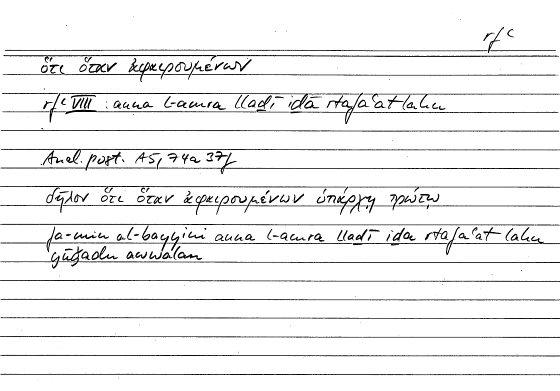 rfʿ
ὅτι ὅταν ἀφαιρουμένων
rfʿ VIII : anna l-amra llaḏī iḏā rtafaʿat lahu
Anal. post. A5, 74a 37f
δῆλον ὅτι ὅταν ἀφαιρουμένων ὑπάρχῃ πρώτῳ
fa-min al-bayyini anna l-amra llaḏī iḏa rtafaʿat lahu
yūǧadu awwalan